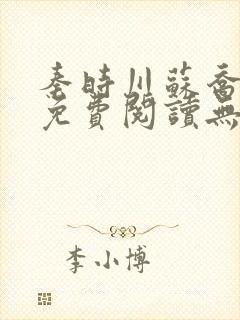 秦時川蘇喬
免費閱讀無
李小博